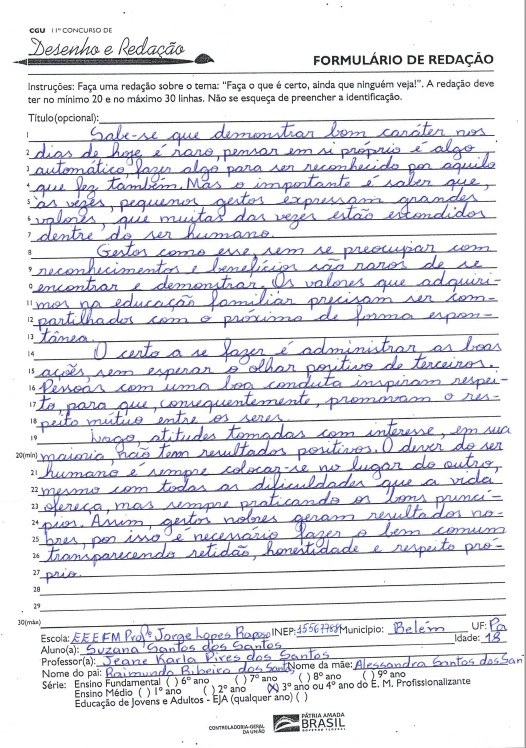 CGU 11º CONCURSO DE
Desenho e Redação
FORMULÁRIO DE REDAÇÃO
Instruções: Faça uma redação sobre o tema: "Faça o que é certo, ainda que ninguém veja!". A redação deve
ter no mínimo 20 e no máximo 30 linhas. Não se esqueça de preencher a identificação.
Título(opcional):
1 Sabe-se que demonstrar bom caráter nos
2 dias de hoje é raro, pensar em si próprio é algo
3 automático, fazer algo para ser reconhecido por aquilo
4 que fez também. Mas o importante é saber que,
5 às vezes, pequenos gestos expressam grandes
6 valores, que muitas das vezes estão escondidos
7 dentro do ser humano.
8 Gestos como esse, sem se preocupar com
9 reconhecimentos e benefícios são raros de se
10 encontrar e demonstrar. Os valores que adquiri-
11 mos na educação familiar precisam ser com-
12 partilhados com o próximo de forma espon-
13 tânea.
14 O certo a se fazer é administrar as boas
15 ações, sem esperar o olhar positivo de terceiros.
16 Pessoas com uma boa conduta inspiram respei-
17 to, para que, consequentemente, promovam o res-
18 peito mútuo entre os seres.
19 Logo, atitudes tomadas com interesse, em sua
20(min) maioria, não tem resultados positivos. O dever do ser
21 humano é sempre colocar-se no lugar do outro,
22 mesmo com todas as dificuldades que a vida
23 ofereça, mas sempre praticando os bons princí-
24 pios. Assim, gestos nobres geram resultados no-
25 bres, por isso é necessário fazer o bem comum
26 transparecendo retidão, honestidade e respeito pró-
27 prio.
28
29
30(máx)
Escola: EEEFM Profº Jorge Lopes Raposo INEP: Município: Belém UF: Pa
Aluno(a): Suzana Santos dos Santos Idade: 18
Professor(a): Jeane Karla Pires dos Santos
Nome do pai: Raimundo Ribeiro dos Santos Nome da mãe: Alessandra Santos dos San
Série: Ensino Fundamental ( ) 6º ano ( ) 7º ano ( ) 8º ano ( ) 9º ano
Ensino Médio ( ) 1º ano ( ) 2º ano (X) 3º ano ou 4º ano do E. M. Profissionalizante
Educação de Jovens e Adultos - EJA (qualquer ano) ( )
CONTROLADORIA-GERAL
DA UNIÃO
PÁTRIA AMADA
BRASIL
GOVERNO FEDERAL